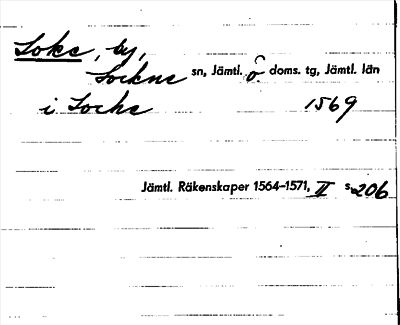 Loke, by,
Lockne sn, Jämtl. ö. doms. tg, Jämtl. län
i Locke 1569
Jämtl. Räkenskaper 1564-1571, II s. 206